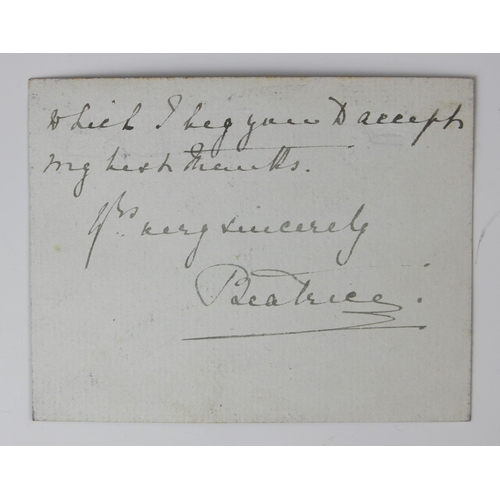 which I beg you to accept
my best thanks.
Yrs very sincerely
Beatrice.